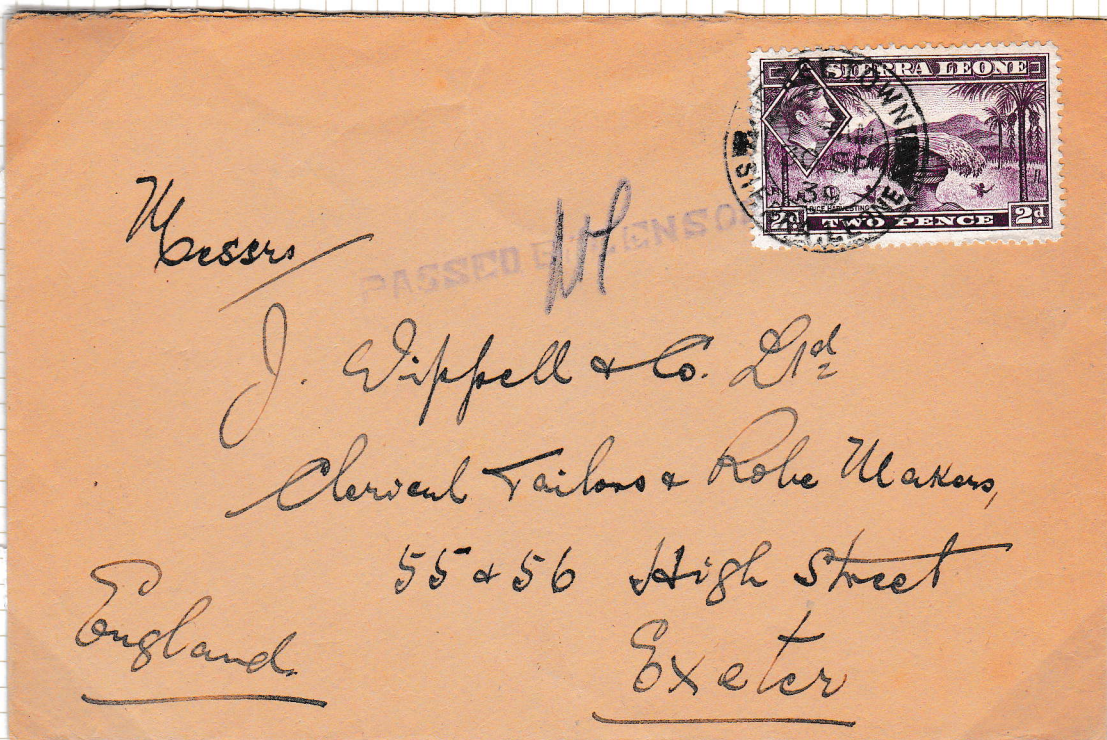 SIERRA LEONE
RICE HARVESTING
2d TWO PENCE 2d
FREETOWN
SIERRA LEONE
AM
SP
39
PASSED BY CENSOR
Messrs
J. Wippell & Co. Ltd
Clerical Tailors & Robe Makers,
55 & 56 High Street
Exeter
England.